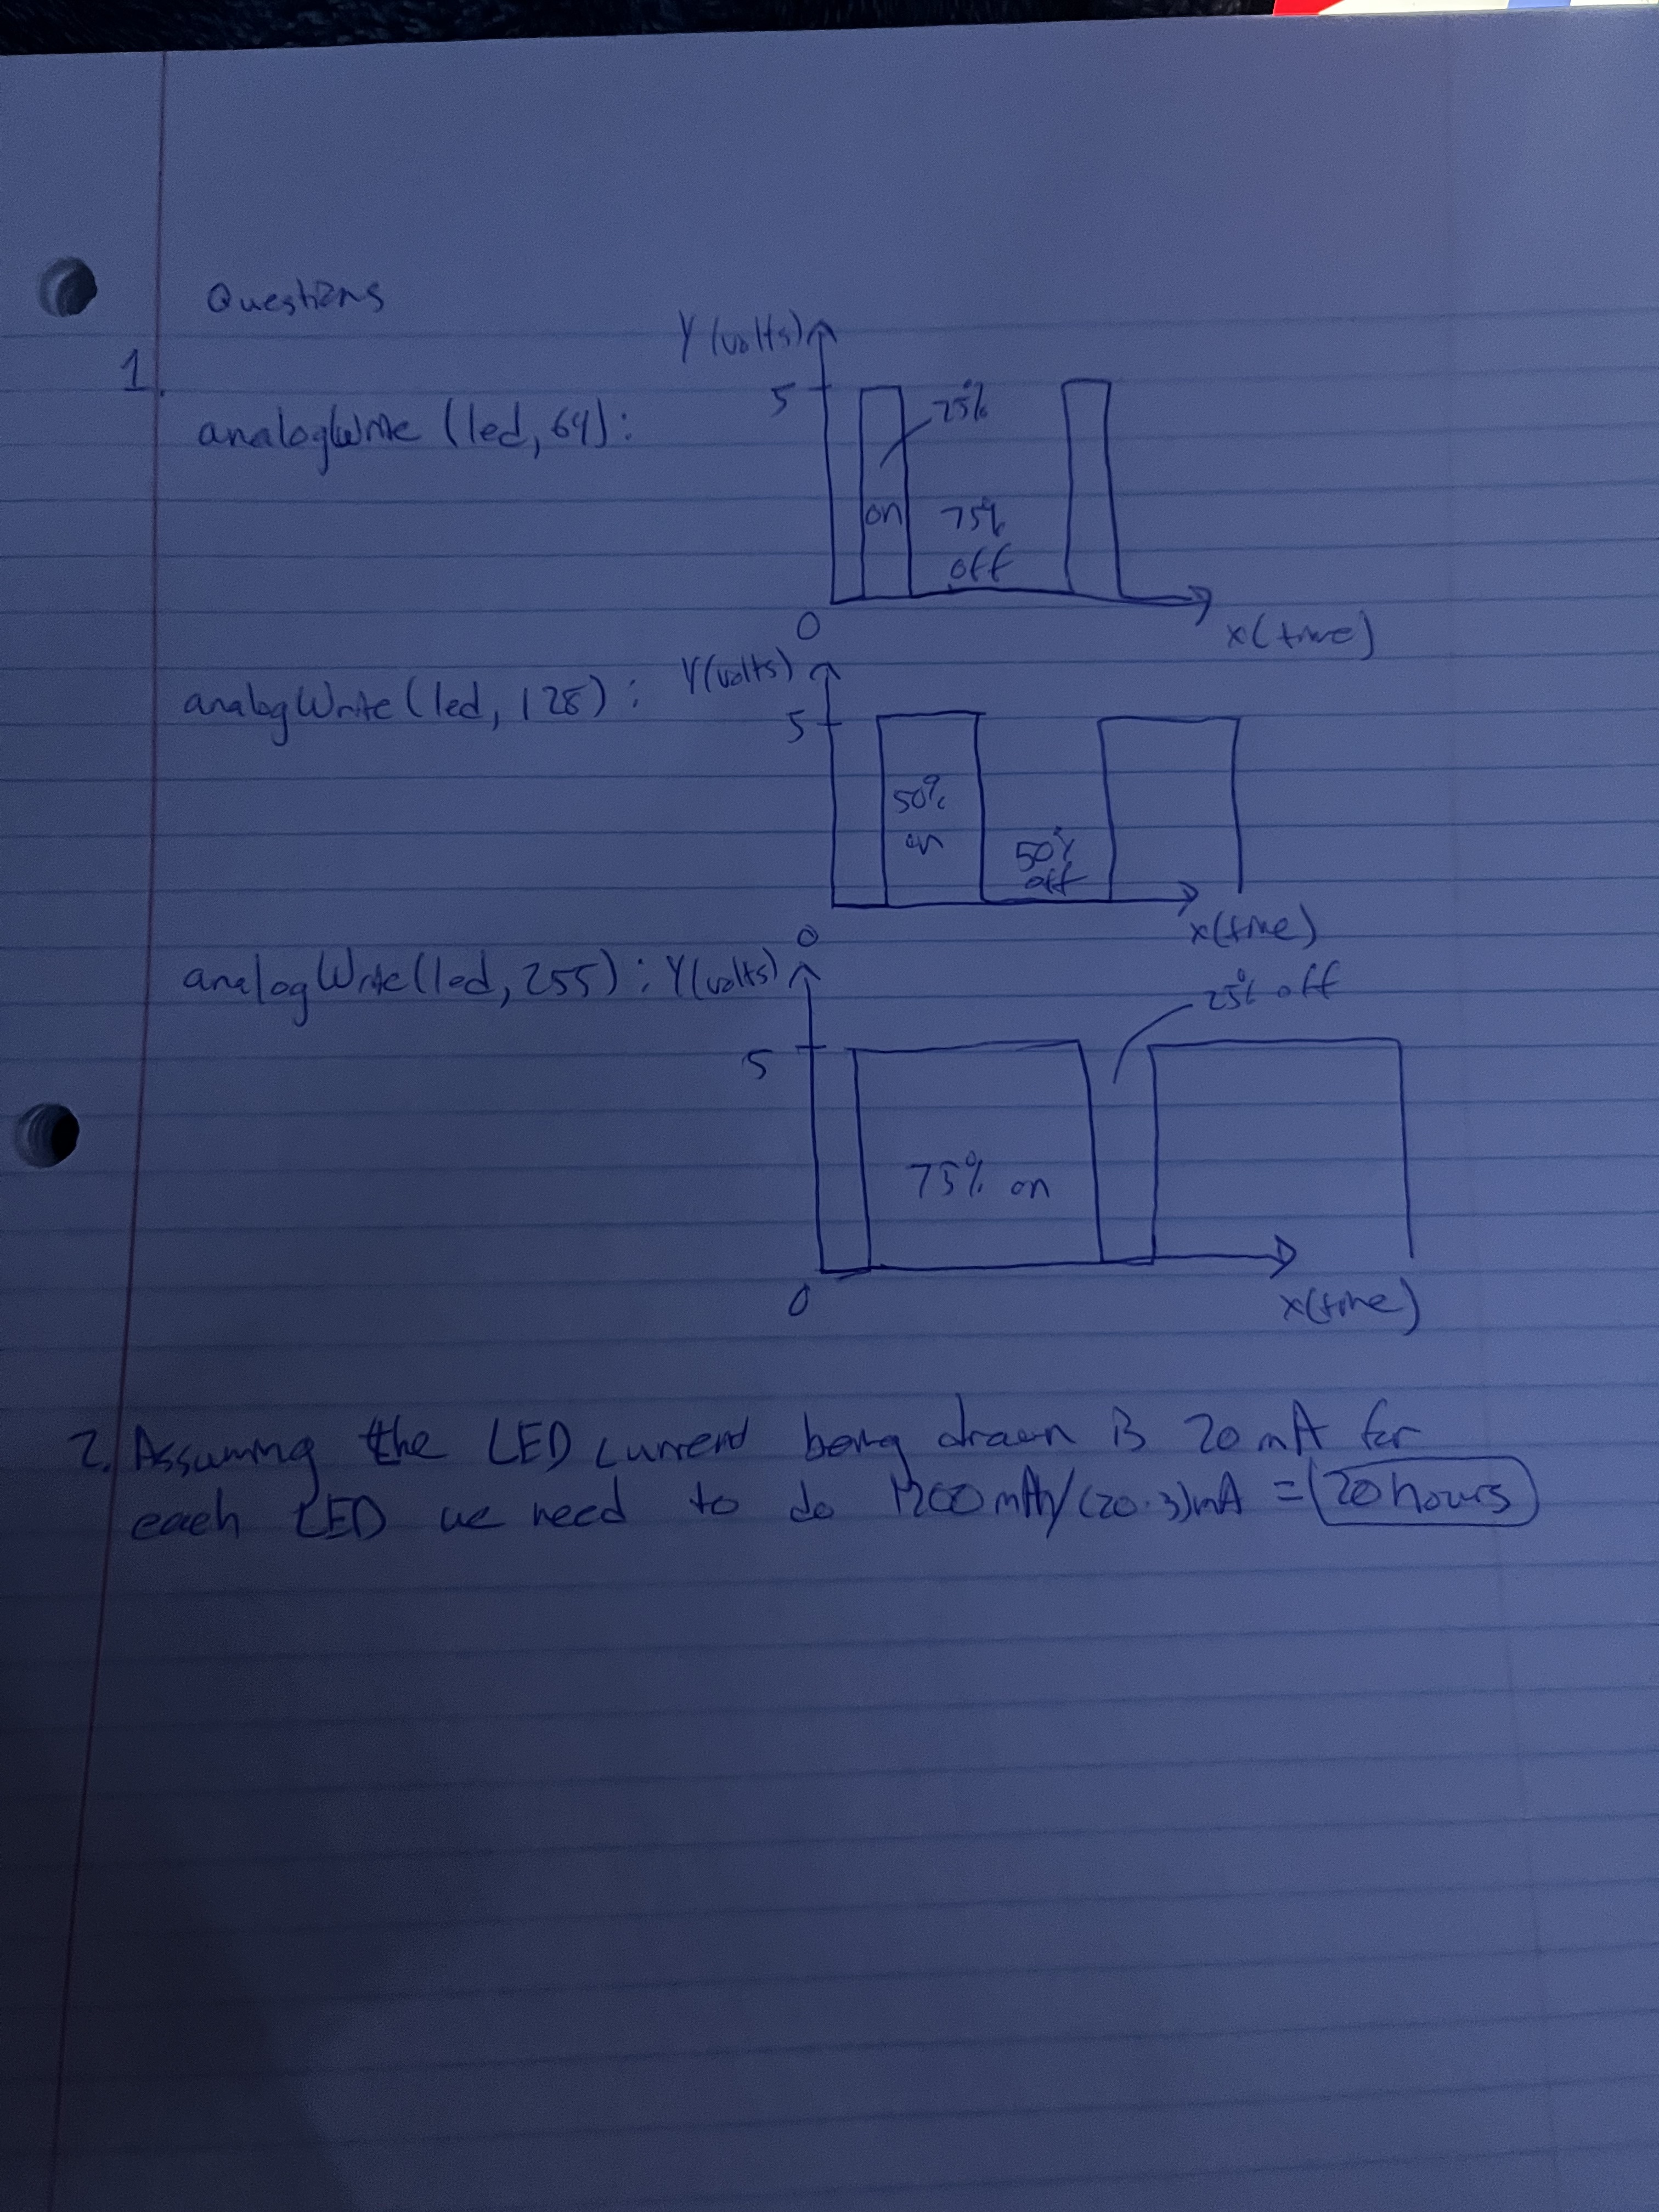 Questions
1.
Y (volts)
analogWrite (led, 64):
5
25%
on
75%
off
0
x (time)
analogWrite (led, 128) :
Y (volts)
5
50%
on
50%
off
0
x (time)
analogWrite (led, 255) : Y (volts)
25% off
5
75% on
0
x (time)
2. Assuming the LED current being drawn is 20 mA for
each LED we need to do 1200 mAh/(20·3)mA = 20 hours